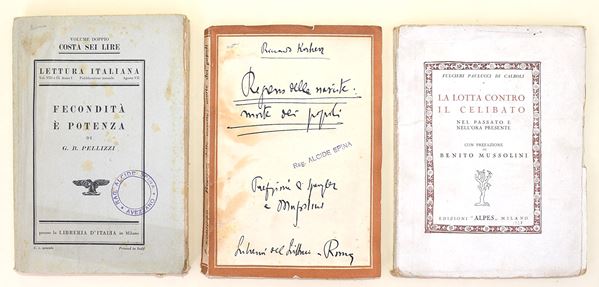 VOLUME DOPPIO
COSTA SEI LIRE
LETTURA ITALIANA
FECONDITÀ
È POTENZA
DI
G. B. PELLIZZI
RAG. ALCIDE SPINA
AVEZZANO
presso la LIBRERIA D'ITALIA in Milano
Printed in Italy
Riccardo Korherr
Regresso delle nascite:
morte dei popoli
RAG. ALCIDE SPINA
Prefazioni di Spengler
e Mussolini
Libreria del Littorio - Roma
FULCIERI PAULUCCI DI CALBOLI
LA LOTTA CONTRO
IL CELIBATO
NEL PASSATO E
NELL'ORA PRESENTE
CON PREFAZIONE
DI
BENITO MUSSOLINI
EDIZIONI "ALPES" MILANO